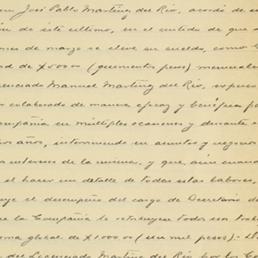 don José Pablo Martínez del Río, acordó de su
ón de éste último, en el sentido de que a
mes de marzo se eleve su sueldo, como G
ad de $500.00 (quinientos pesos) mensuales
enciado Manuel Martínez del Río, expuso
colaborado de manera eficaz y benéfica pa
ompañía en múltiples ocasiones y durante
os años, interviniendo en asuntos y negocios
interesa de la misma, y que, aún cuando
el hacer un detalle de todas estas labores,
uye el desempeño del cargo de Secretario d
e la Compañía le retribuyera todos sus trab
oma global de $1,000.00 (un mil pesos).- 
del Licenciado Martínez del Río por los